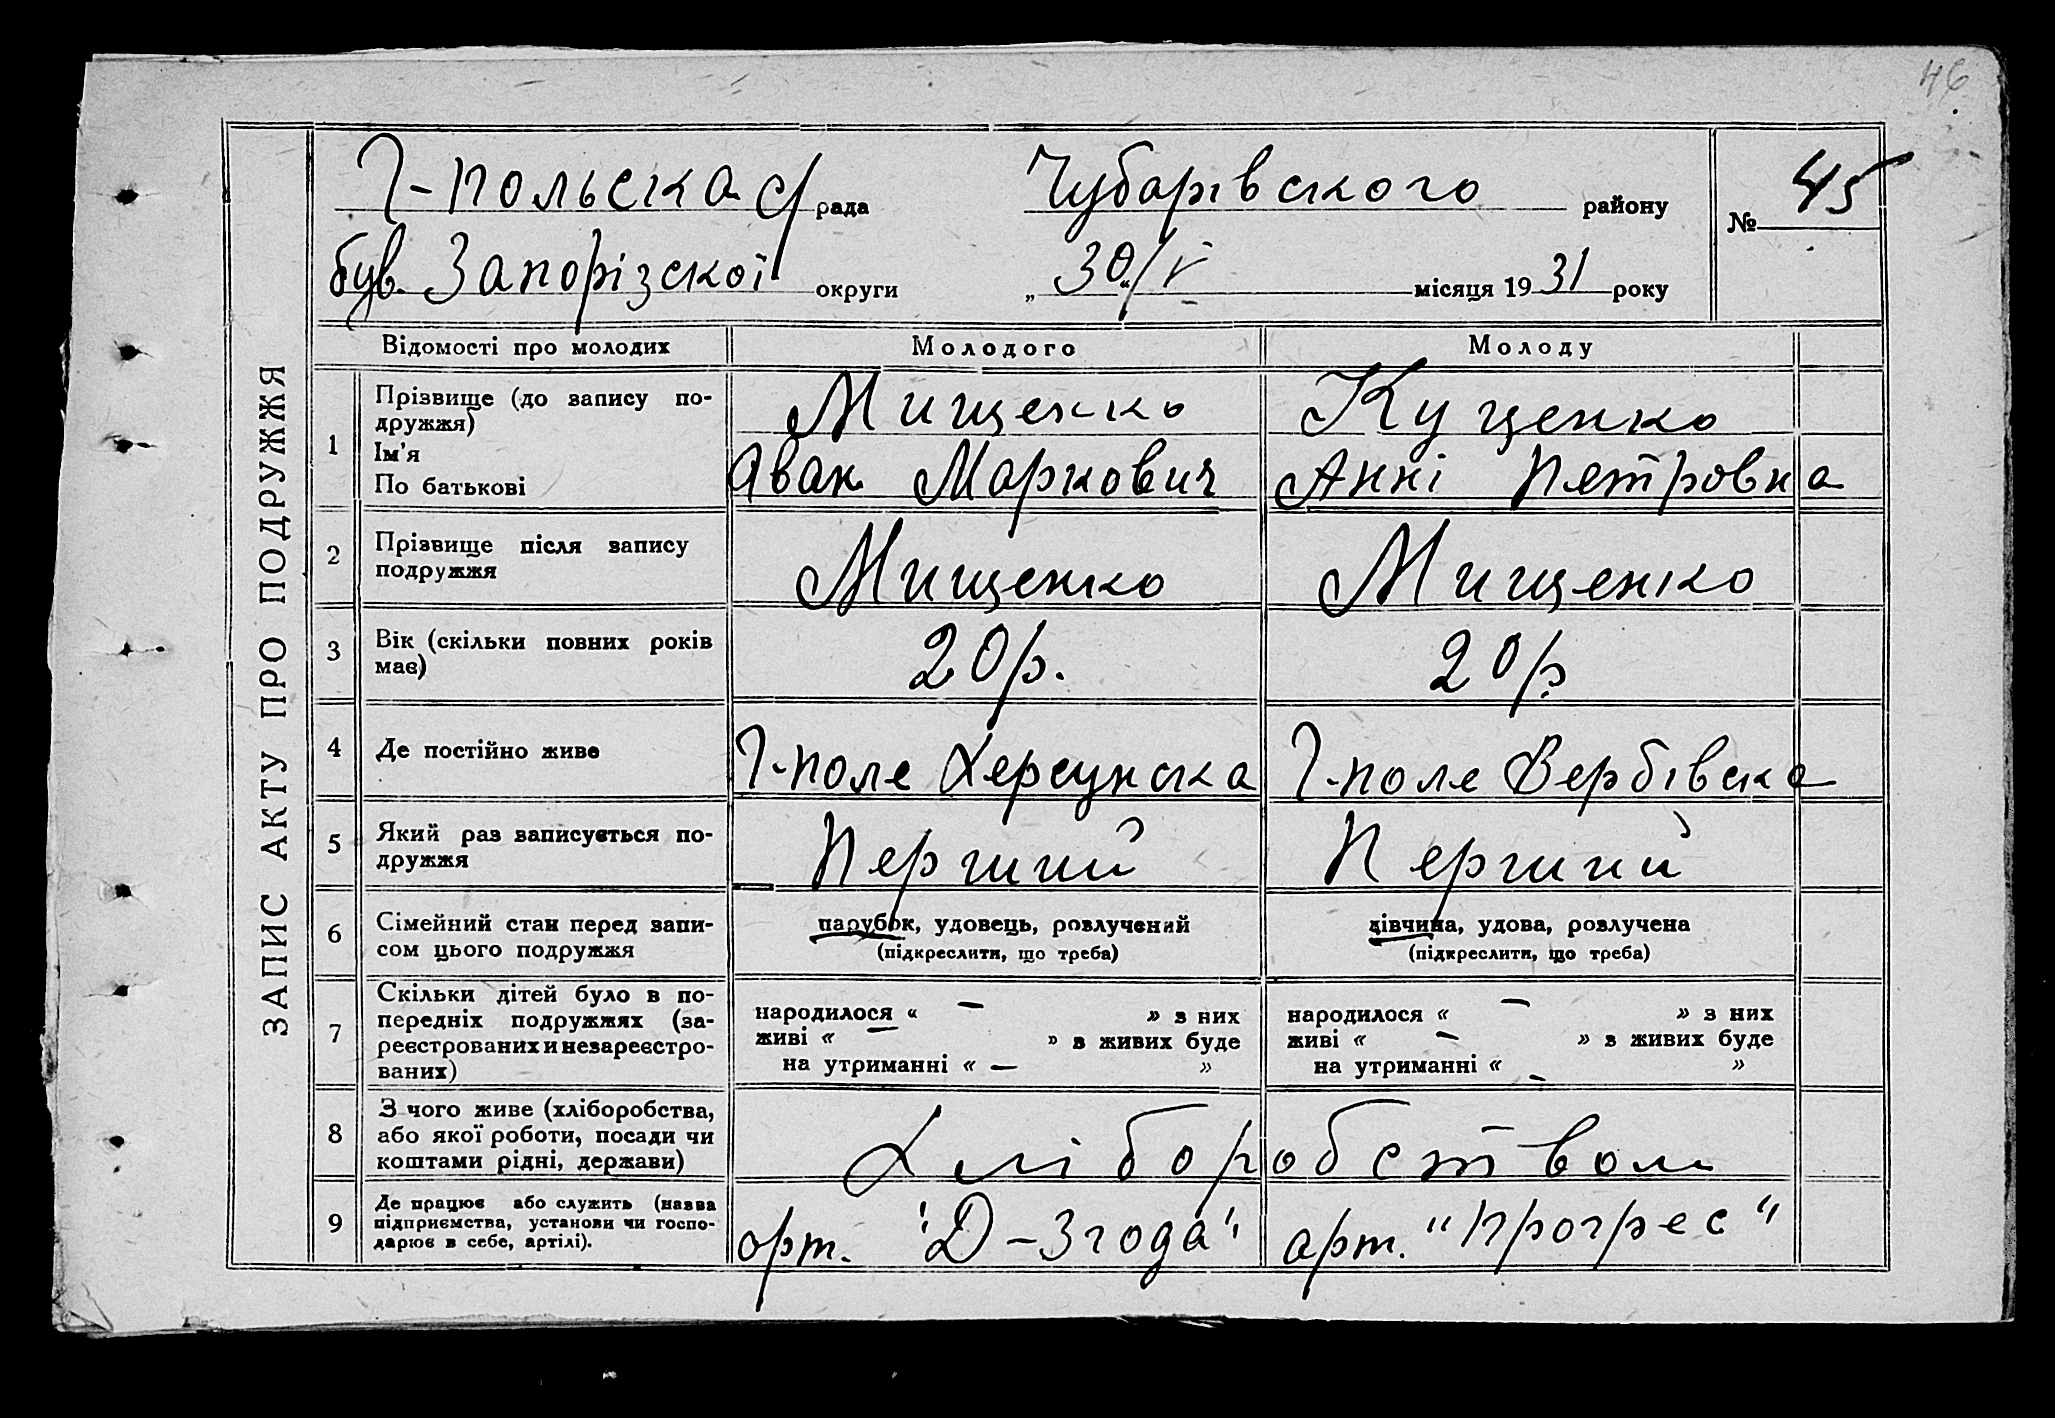 46
Г-польска с/рада Чубарівського району № 45
був. Запорізскої округи „30/V“ місяця 1931 року
ЗАПИС АКТУ ПРО ПОДРУЖЖЯ
Відомості про молодих Молодого Молоду
1 Прізвище (до запису по-
дружжя) Мищенко Куценко
Ім'я
По батькові Іван Маркович Анні Петровна
2 Прізвище після запису
подружжя Мищенко Мищенко
3 Вік (скільки повних років
має) 20 р. 20 р
4 Де постійно живе Г-поле Херсунска Г-поле Вербівска
5 Який раз записується по-
дружжя Перший Перший
6 Сімейний стан перед запи-
сом цього подружжя
парубок, удовець, розлучений дівчина, удова, розлучена
(підкреслити, що треба) (підкреслити, що треба)
7 Скільки дітей було в по-
передніх подружжях (за-
реєстрованих и незареєстро-
ваних)
народилося « — » з них народилося « — » з них
живі « — » з живих буде живі « — » з живих буде
на утриманні « — » на утриманні « — »
8 З чого живе (хліборобства,
або якої роботи, посади чи
коштами рідні, держави) Хліборобством
9 Де працює або служить (назва
підприємства, установи чи госпо-
дарює в себе, артілі). арт. "Д-Згода" арт. "Прогрес"